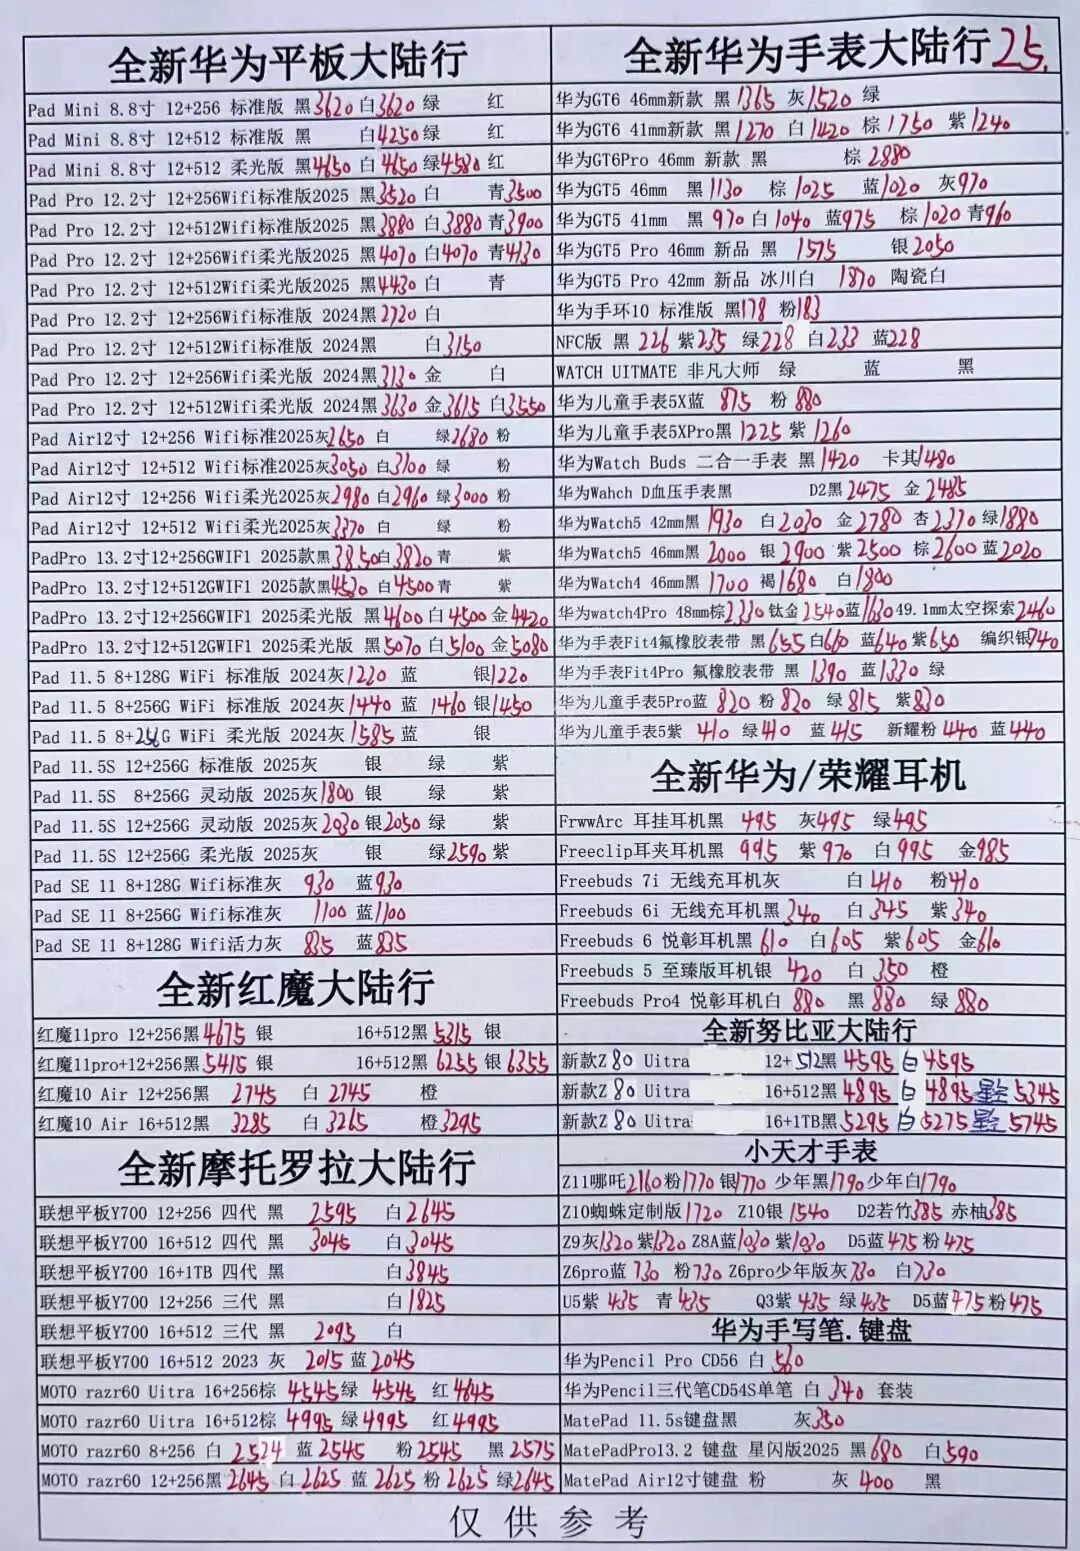 全新华为平板大陆行
Pad Mini 8.8寸 12+256 标准版 黑3620 白3620 绿 红
Pad Mini 8.8寸 12+512 标准版 黑 白4250 绿 红
Pad Mini 8.8寸 12+512 柔光版 黑4650 白4650 绿4580 红
Pad Pro 12.2寸 12+256Wifi标准版2025 黑3520 白 青3500
Pad Pro 12.2寸 12+512Wifi标准版2025 黑3880 白3880 青3900
Pad Pro 12.2寸 12+256Wifi柔光版2025 黑4070 白4070 青4130
Pad Pro 12.2寸 12+512Wifi柔光版2025 黑4430 白 青
Pad Pro 12.2寸 12+256Wifi标准版 2024黑2720 白
Pad Pro 12.2寸 12+512Wifi标准版 2024黑 白3150
Pad Pro 12.2寸 12+256Wifi柔光版 2024黑3130 金 白
Pad Pro 12.2寸 12+512Wifi柔光版 2024黑3630 金3615 白3550
Pad Air12寸 12+256 Wifi标准2025灰2650 白 绿2680 粉
Pad Air12寸 12+512 Wifi标准2025灰3050 白3100 绿 粉
Pad Air12寸 12+256 Wifi柔光2025灰2980 白2960 绿3000 粉
Pad Air12寸 12+512 Wifi柔光2025灰3370 白 绿 粉
PadPro 13.2寸12+256GWIF1 2025款黑3850白3820 青 紫
PadPro 13.2寸12+512GWIF1 2025款黑4530 白4500 青 紫
PadPro 13.2寸12+256GWIF1 2025柔光版 黑4600 白4500 金4420
PadPro 13.2寸12+512GWIF1 2025柔光版 黑5070 白5100 金5080
Pad 11.5 8+128G WiFi 标准版 2024灰1220 蓝 银1220
Pad 11.5 8+256G WiFi 标准版 2024灰1440 蓝 1460 银1450
Pad 11.5 8+256G WiFi 柔光版 2024灰1585 蓝 银
Pad 11.5S 12+256G 标准版 2025灰 银 绿 紫
Pad 11.5S 8+256G 灵动版 2025灰1800 银 绿 紫
Pad 11.5S 12+256G 灵动版 2025灰2030 银2050 绿 紫
Pad 11.5S 12+256G 柔光版 2025灰 银 绿2590 紫
Pad SE 11 8+128G Wifi标准灰 930 蓝930
Pad SE 11 8+256G Wifi标准灰 1100 蓝1100
Pad SE 11 8+128G Wifi活力灰 835 蓝835
全新红魔大陆行
红魔11pro 12+256黑4675 银 16+512黑5315 银
红魔11pro+12+256黑5415 银 16+512黑6255 银6355
红魔10 Air 12+256黑 2745 白 2745 橙
红魔10 Air 16+512黑 3285 白 3265 橙3295
全新摩托罗拉大陆行
联想平板Y700 12+256 四代 黑 2595 白2645
联想平板Y700 16+512 四代 黑 3045 白3045
联想平板Y700 16+1TB 四代 黑 白3845
联想平板Y700 12+256 三代 黑 白1825
联想平板Y700 16+512 三代 黑 2095 白
联想平板Y700 16+512 2023 灰 2015 蓝2045
MOTO razr60 Uitra 16+256棕 4545 绿 4545 红4645
MOTO razr60 Uitra 16+512棕 4995 绿4995 红4995
MOTO razr60 8+256 白 2524 蓝2545 粉2545 黑2575
MOTO razr60 12+256黑2645 白2625 蓝2625 粉2625 绿2645
全新华为手表大陆行25.
华为GT6 46mm新款 黑1365 灰1520 绿
华为GT6 41mm新款 黑1270 白1420 棕1750 紫1240
华为GT6Pro 46mm 新款 黑 棕2880
华为GT5 46mm 黑1130 棕1025 蓝1020 灰970
华为GT5 41mm 黑970 白1040 蓝975 棕1020 青960
华为GT5 Pro 46mm 新品 黑 1575 银2050
华为GT5 Pro 42mm 新品 冰川白 1870 陶瓷白
华为手环10 标准版 黑178 粉183
NFC版 黑 226 紫235 绿228 白233 蓝228
WATCH UITMATE 非凡大师 绿 蓝 黑
华为儿童手表5X蓝 875 粉880
华为儿童手表5XPro黑1225 紫1260
华为Watch Buds 二合一手表 黑1420 卡其1480
华为Wahch D血压手表黑 D2黑2475 金2485
华为Watch5 42mm黑1930 白2030 金2780 杏2370 绿1880
华为Watch5 46mm黑2000 银2900 紫2500 棕2600 蓝2020
华为Watch4 46mm黑1700 褐1680 白1800
华为watch4Pro 48mm棕2330 钛金2540蓝1630 49.1mm太空探索2460
华为手表Fit4氟橡胶表带 黑655 白660 蓝640 紫650 编织银740
华为手表Fit4Pro 氟橡胶表带 黑1390 蓝1330 绿
华为儿童手表5Pro蓝 820 粉820 绿815 紫830
华为儿童手表5紫 410 绿410 蓝415 新耀粉440 蓝440
全新华为/荣耀耳机
FrwwArc 耳挂耳机黑 495 灰495 绿495
Freeclip耳夹耳机黑 995 紫970 白995 金985
Freebuds 7i 无线充耳机灰 白410 粉410
Freebuds 6i 无线充耳机黑340 白345 紫340
Freebuds 6 悦彰耳机黑610 白605 紫605 金610
Freebuds 5 至臻版耳机银 420 白350 橙
Freebuds Pro4 悦彰耳机白880 黑880 绿880
全新努比亚大陆行
新款Z80 Uitra 12+512黑4595 白4595
新款Z80 Uitra 16+512黑4895 白4895 星空5345
新款Z80 Uitra 16+1TB黑5295 白5275 星空5745
小天才手表
Z11哪吒2160粉1770 银1770 少年黑1790少年白1790
Z10蜘蛛定制版1720 Z10银1540 D2若竹385 赤柚385
Z9灰1320 紫1320 Z8A蓝1030 紫1030 D5蓝475 粉475
Z6pro蓝 730 粉730 Z6pro少年版灰730 白730
U5紫 435 青435 Q3紫435 绿435 D5蓝475粉475
华为手写笔.键盘
华为Pencil Pro CD56 白560
华为Pencil三代笔CD54S单笔 白340 套装
MatePad 11.5s键盘黑 灰350
MatePadPro13.2 键盘 星闪版2025 黑680 白590
MatePad Air12寸键盘 粉 灰 400 黑
仅供参考